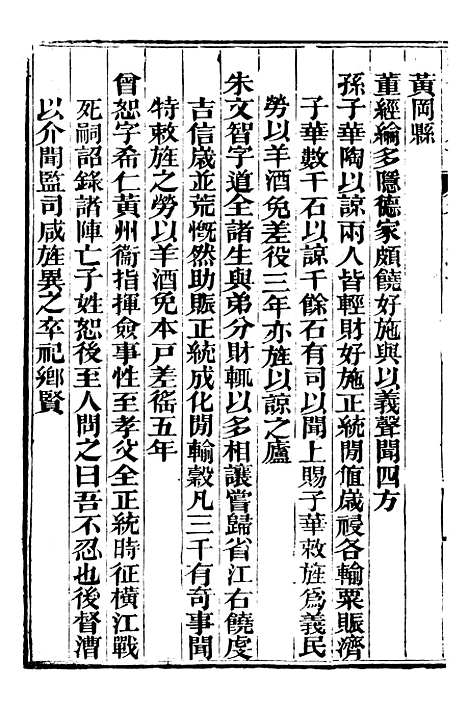 黃岡縣
董經綸多隱德家頗饒好施與以義聲聞四方
孫子華陶以諒兩人皆輕財好施正統閒値歲祲各輸粟賑濟
子華數千石以諒千餘石有司以聞上賜子華敕旌爲義民
勞以羊酒免差役三年亦旌以諒之廬
朱文智字道全諸生與弟分財輒以多相讓嘗歸省江右饒虔
吉信歲並荒慨然助賑正統成化閒輸穀凡三千有奇事聞
特敕旌之勞以羊酒免本戶差徭五年
曾恕字希仁黃州衞指揮僉事性至孝父全正統時征橫江戰
死嗣詔錄諸陣亡子姓恕後至人問之曰吾不忍也後督漕
以介聞監司咸旌異之卒祀鄉賢